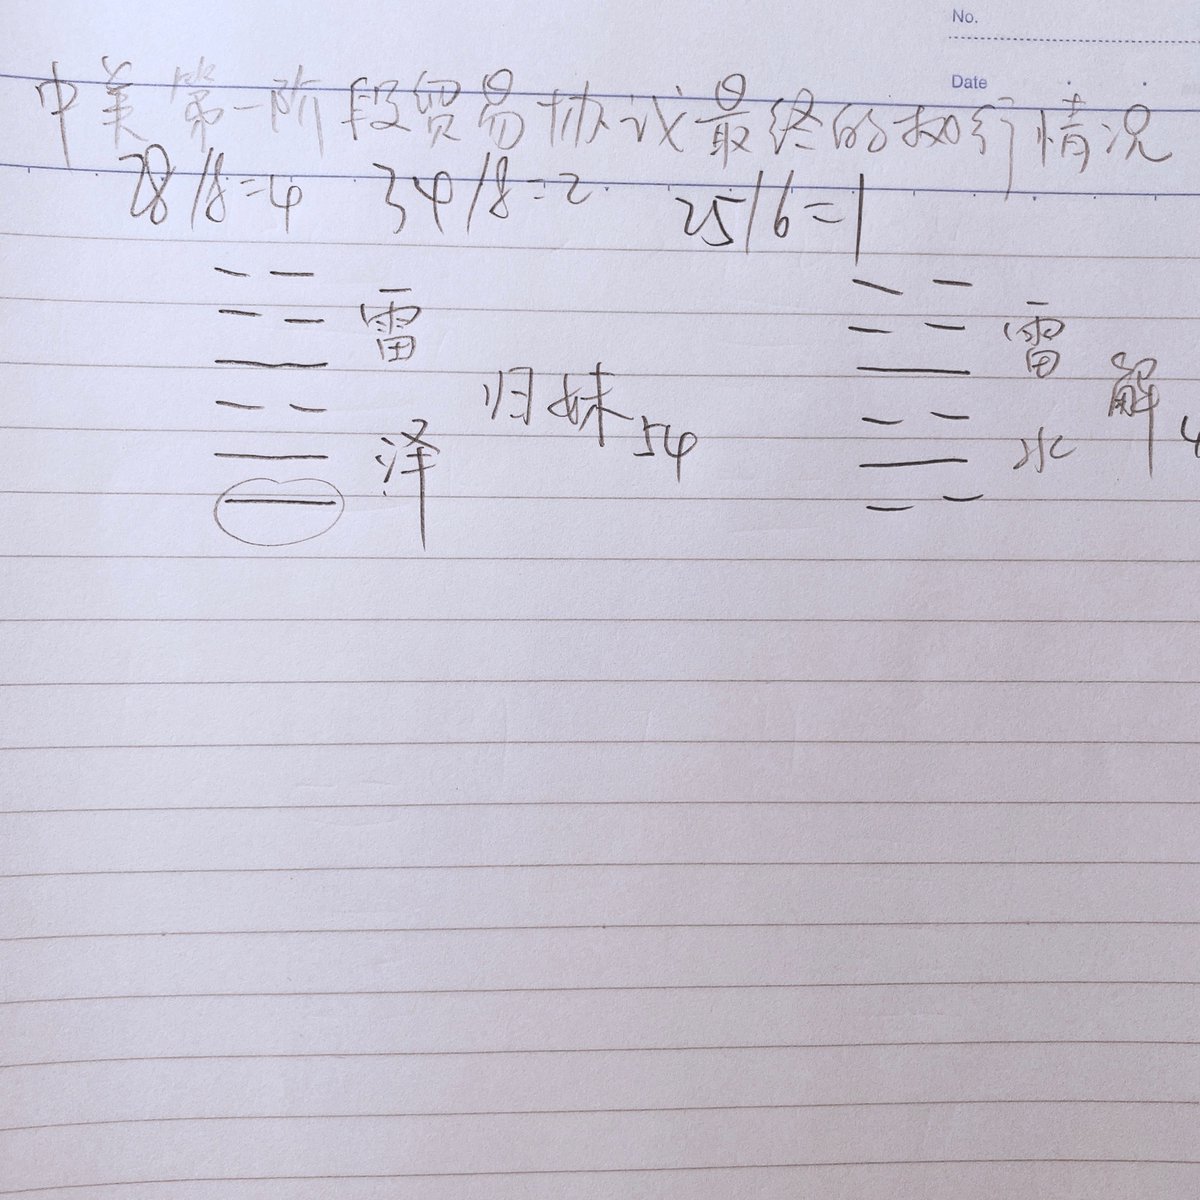 No.
Date
中美第一阶段贸易协议最终的执行情况
28/8=4 34/8=2 25/6=1
雷 雷
归妹54 解4
泽 水